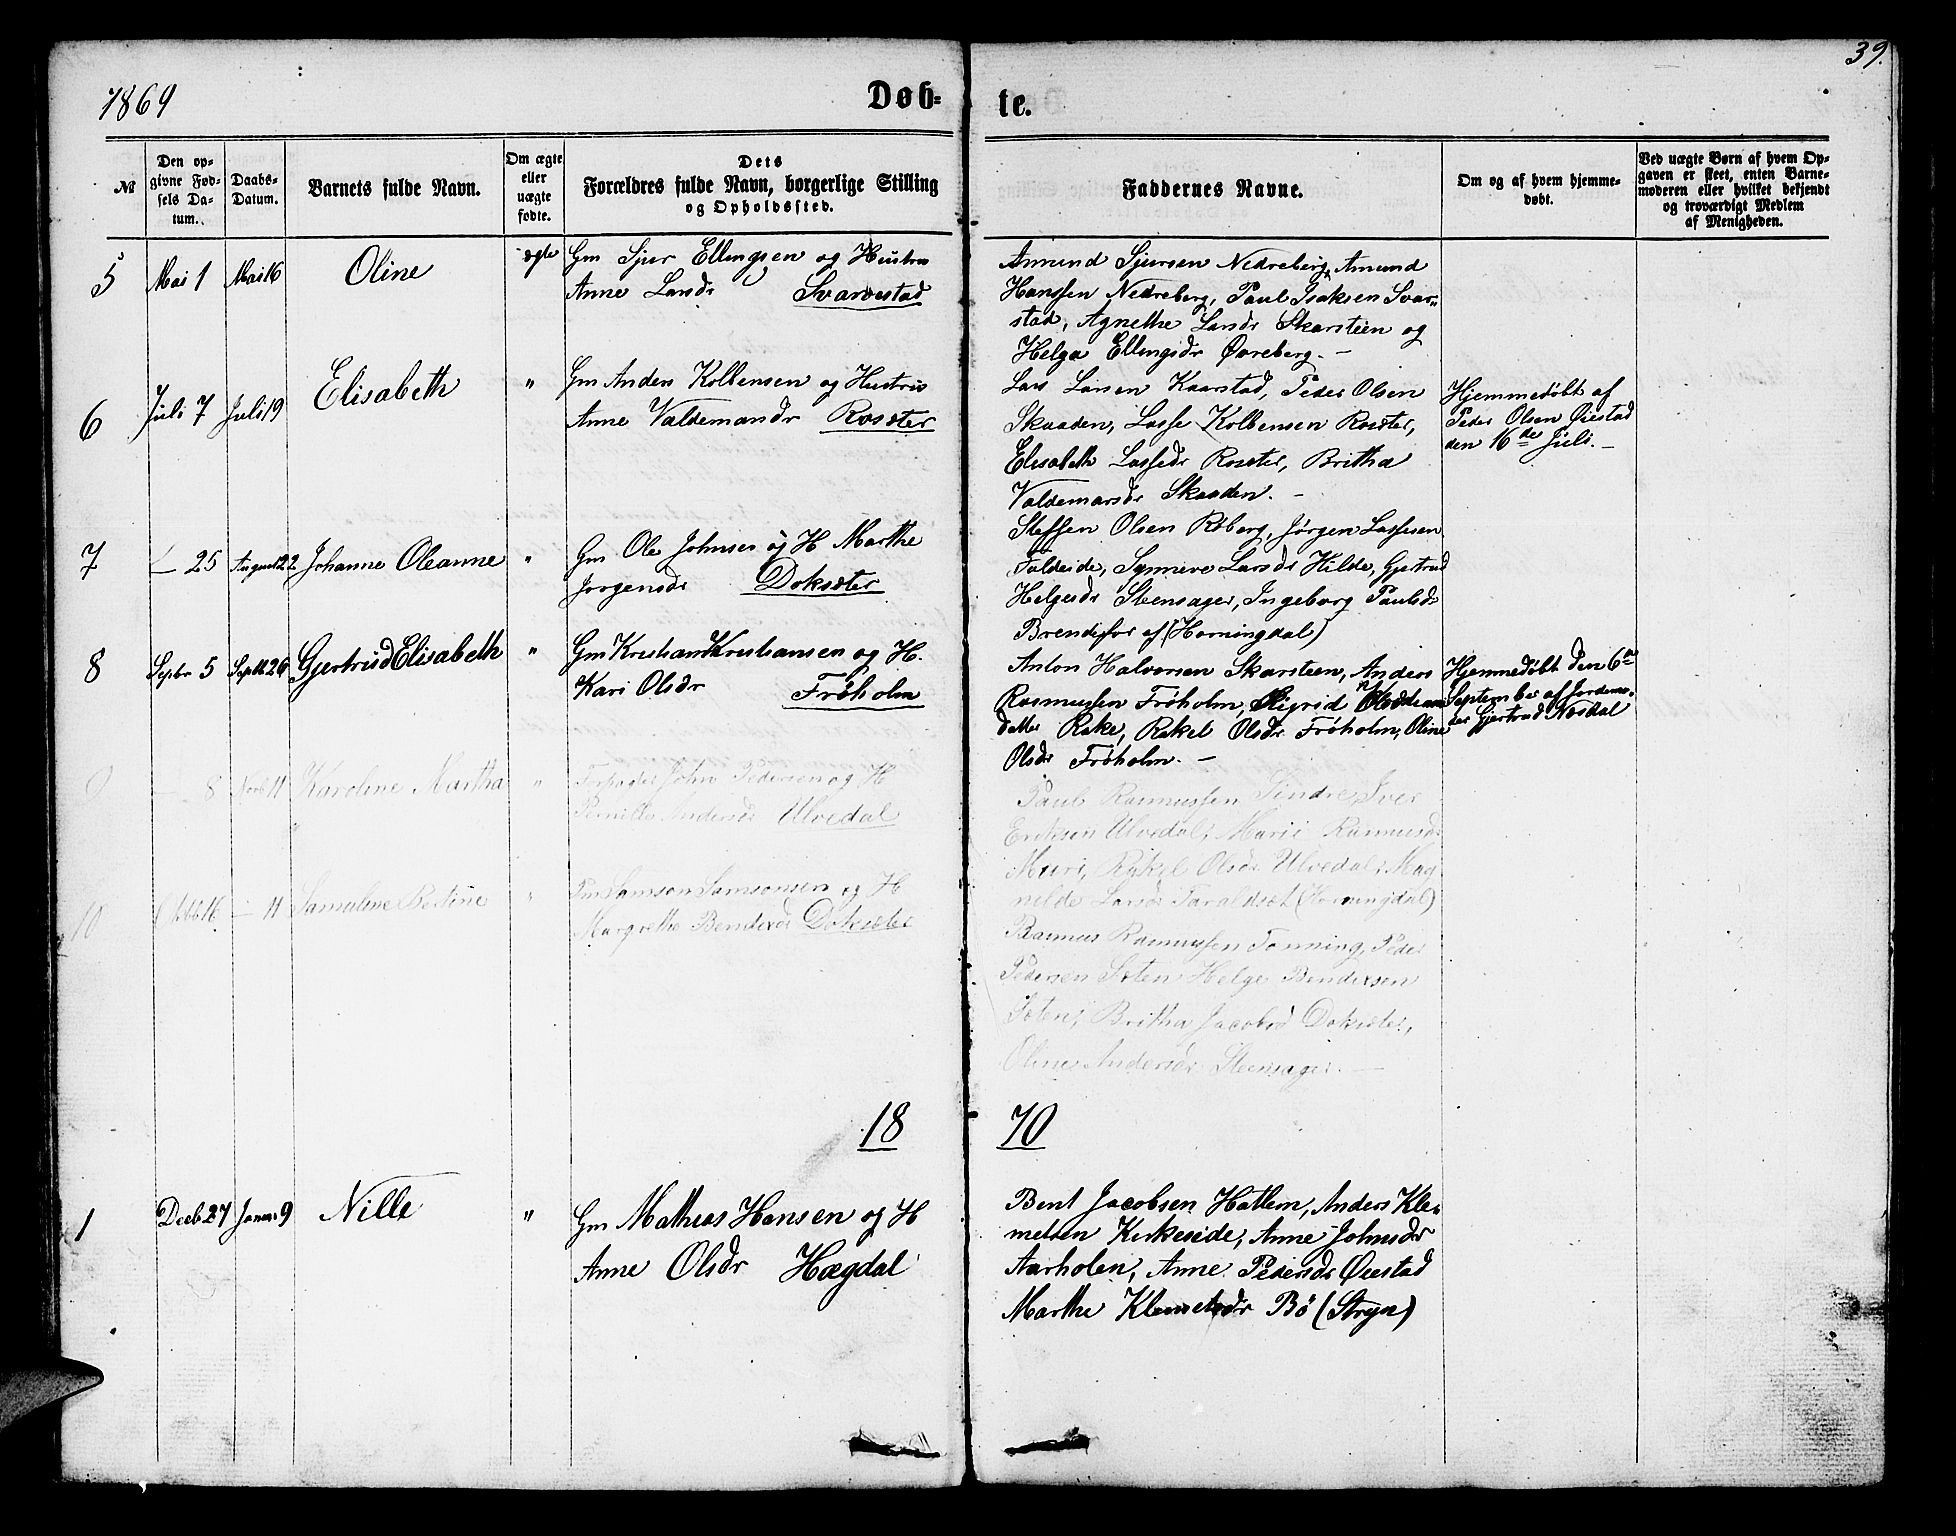 39.
1869
Døb-
te.
№
Den op-
givne Fød-
sels Da-
tum.
Daabs-
Datum.
Barnets fulde Navn.
Om ægte
eller
uægte
fødte.
Dets
Forældres fulde Navn, borgerlige Stilling
og Opholdssted.
Faddernes Navne.
Om og af hvem hjemme-
døbt.
Ved uægte Børn af hvem Op-
gaven er skeet, enten Barne-
moderen eller hvilket bekjendt
og troværdigt Medlem
af Menigheden.
5 Mai 1 Mai 16 Oline ægte
Gm Sjur Ellingsen og Hustru
Anne Larsdr Svarvestad
Amund Sjursen Nedreberg, Amund
Hanssen Nedreberg, Paul Isaksen Svar-
stad, Agnethe Larsdr Skarsteen og
Helga Ellingsdr Øvreberg. —
6 Juli 7 Juli 19 Elisabeth "
Gm Anders Kolbensen og Hustru
Anne Valdemarsdr Rosæter
Lars Larsen Kaarstad, Peder Olsen
Skaaden, Lasse Kolbensen Rosæter,
Elisabeth Lassedr Rosæter, Britha
Valdemarsdr Skaaden. —
Hjemmedøbt af
Peder Olsen Øiestad
den 16de Juli. —
7 — 25 August 22 Johanne Oleanne "
Gm Ole Johnsen og H Marthe
Jorgensdr Doksæter
Steffen Olsen Røberg, Jørgen Lassesen
Faldeide, Synneve Larsdr Hilde, Gjertrud
Helgesdr Steensager, Ingeborg Paulsdr
Brendefor af (Horningdal)
8 Sepbr 5 Septb 26 Gjertrud Elisabeth "
Gm Kristian Kristiansen og H.
Kari Olsdr Frøholm
Anton Halvorsen Skarsteen, Anders
Rasmussen Frøholm, Sigrid
datter Rake, Rakel Olsdr Frøholm, Oline
Olsdr Frøholm. —
Hjemmedøbt den 6te
September af Jordemo-
der Gjertrud Nosdal
9 — 8 Novb 11 Karoline Martha "
John Pedersen og H
Pernille Andersdr Ulvedal
Paul Rasmussen Sindre, Iver
Eriksen Ulvedal, Marie Rasmusdr
Muri, Rakel Olsdr Ulvedal, Mag
nilde Larsdr Taraldsæt (Horningdal)
10 Oktbb 16 — 11 Samuline Bertine "
Pm Samson Samsonsen og H
Margrethe Bendixdr Doksæter
Rasmus Rasmussen Tonning, Peder
Pedersen Soten Helge Bendixsen
Soten, Britha Jacobsd Doksæter,
Oline Andersdr Steensager. —
18
70
1 Decb 27 Januar 9 Nille "
Gm Mathias Hansen og H
Anne Olsdr Hægdal
Bent Jacobsen Hatlem, Anders Kle-
metsen Kirkeeide, Anne Johnsdr
Aarholen, Anne Pedersdr Øiestad
Marthe Klemetsdr Bö (Stryn)